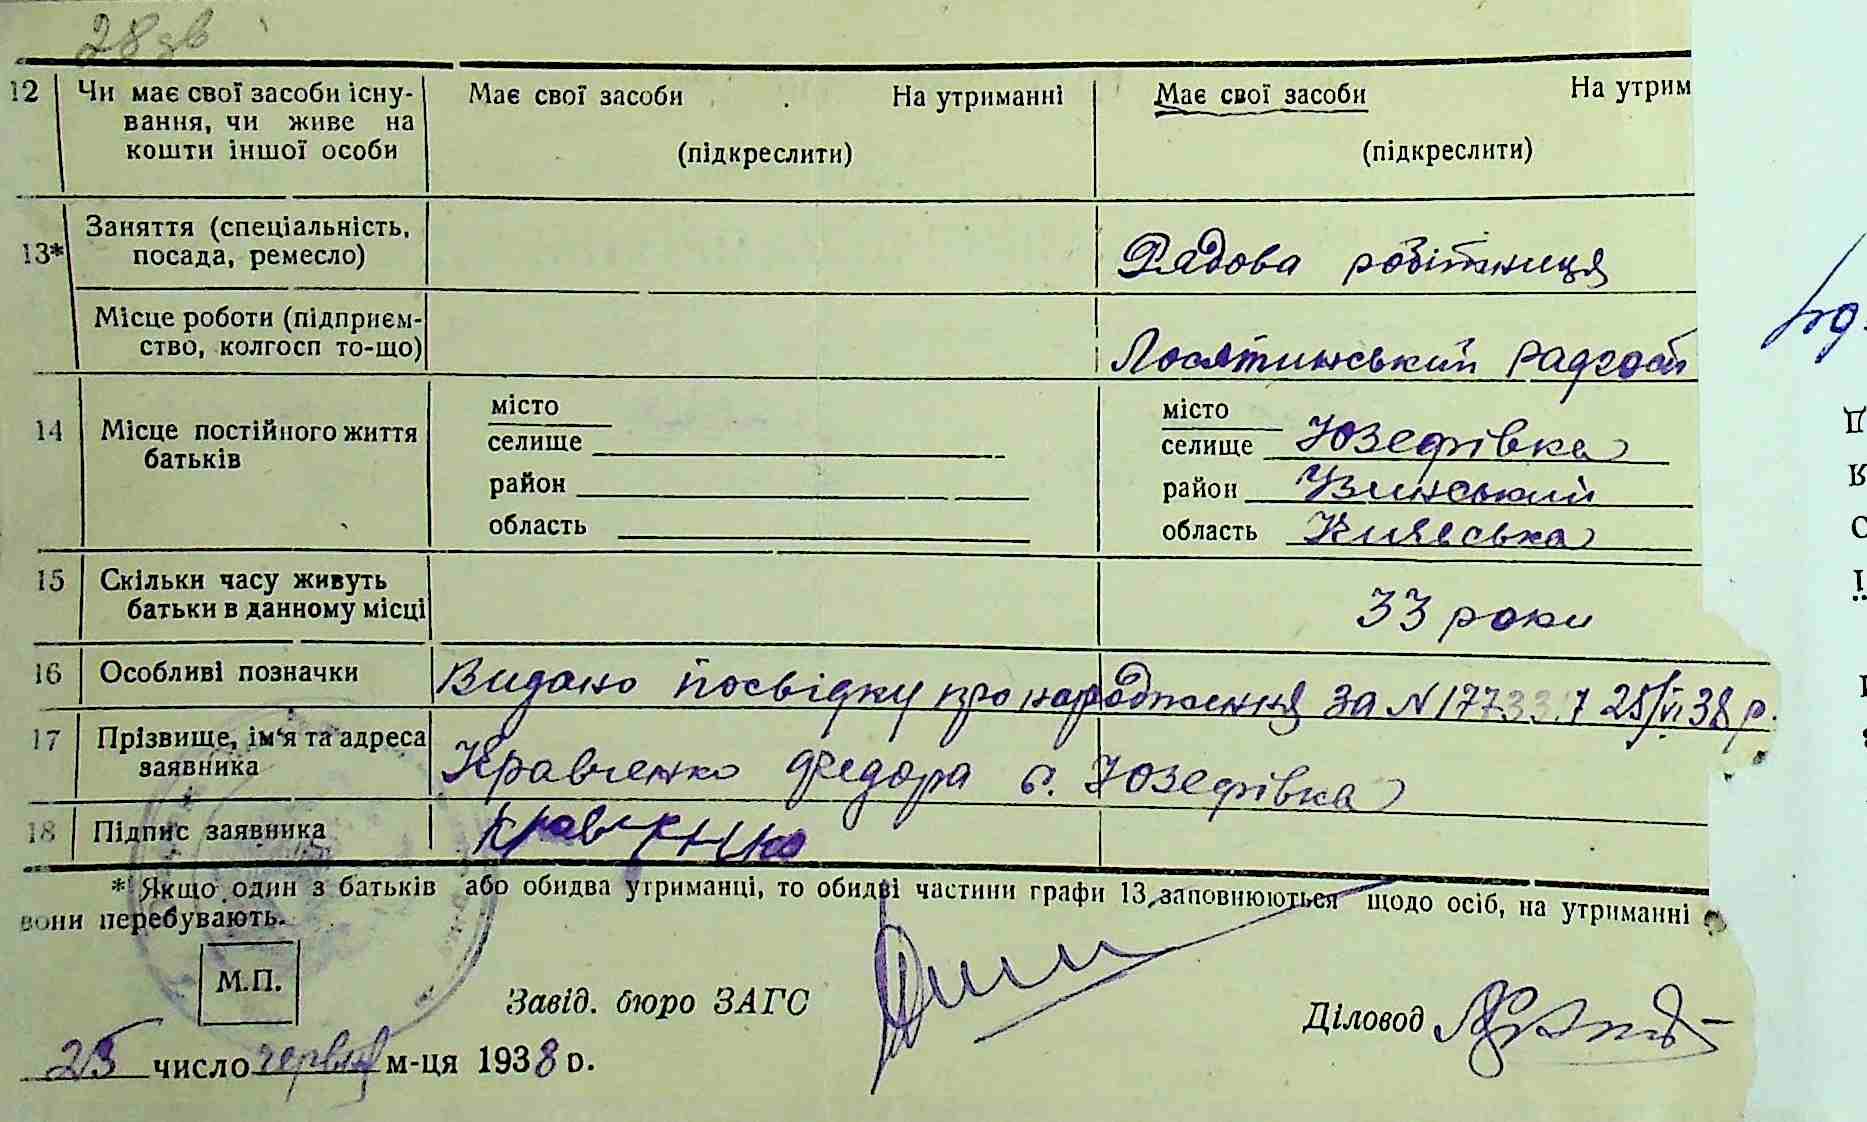 28 зв
12 Чи має свої засоби існу- Має свої засоби На утриманні Має свої засоби На утрим
вання, чи живе на
кошти іншої особи (підкреслити) (підкреслити)
13* Заняття (спеціальність,
посада, ремесло) Рядова робітниця
Місце роботи (підприєм-
ство, колгосп то-що) Лосятинський радгосп
14 Місце постійного життя місто місто
батьків селище селище Юзефівка
район район Узинський
область область Київська
15 Скільки часу живуть
батьки в данному місці 33 роки
16 Особливі позначки Видано посвідку про народження за № 25/VI 38 р.
17 Прізвище, ім'я та адреса
заявника Кравченко Федора с. Юзефівка
18 Підпис заявника Кравченко
* Якщо один з батьків або обидва утриманці, то обидві частини графи 13 заповнюються щодо осіб, на утриманні
вони перебувають.
М.П.
Завід. бюро ЗАГС
Діловод
25 число червня м-ця 1938 р.